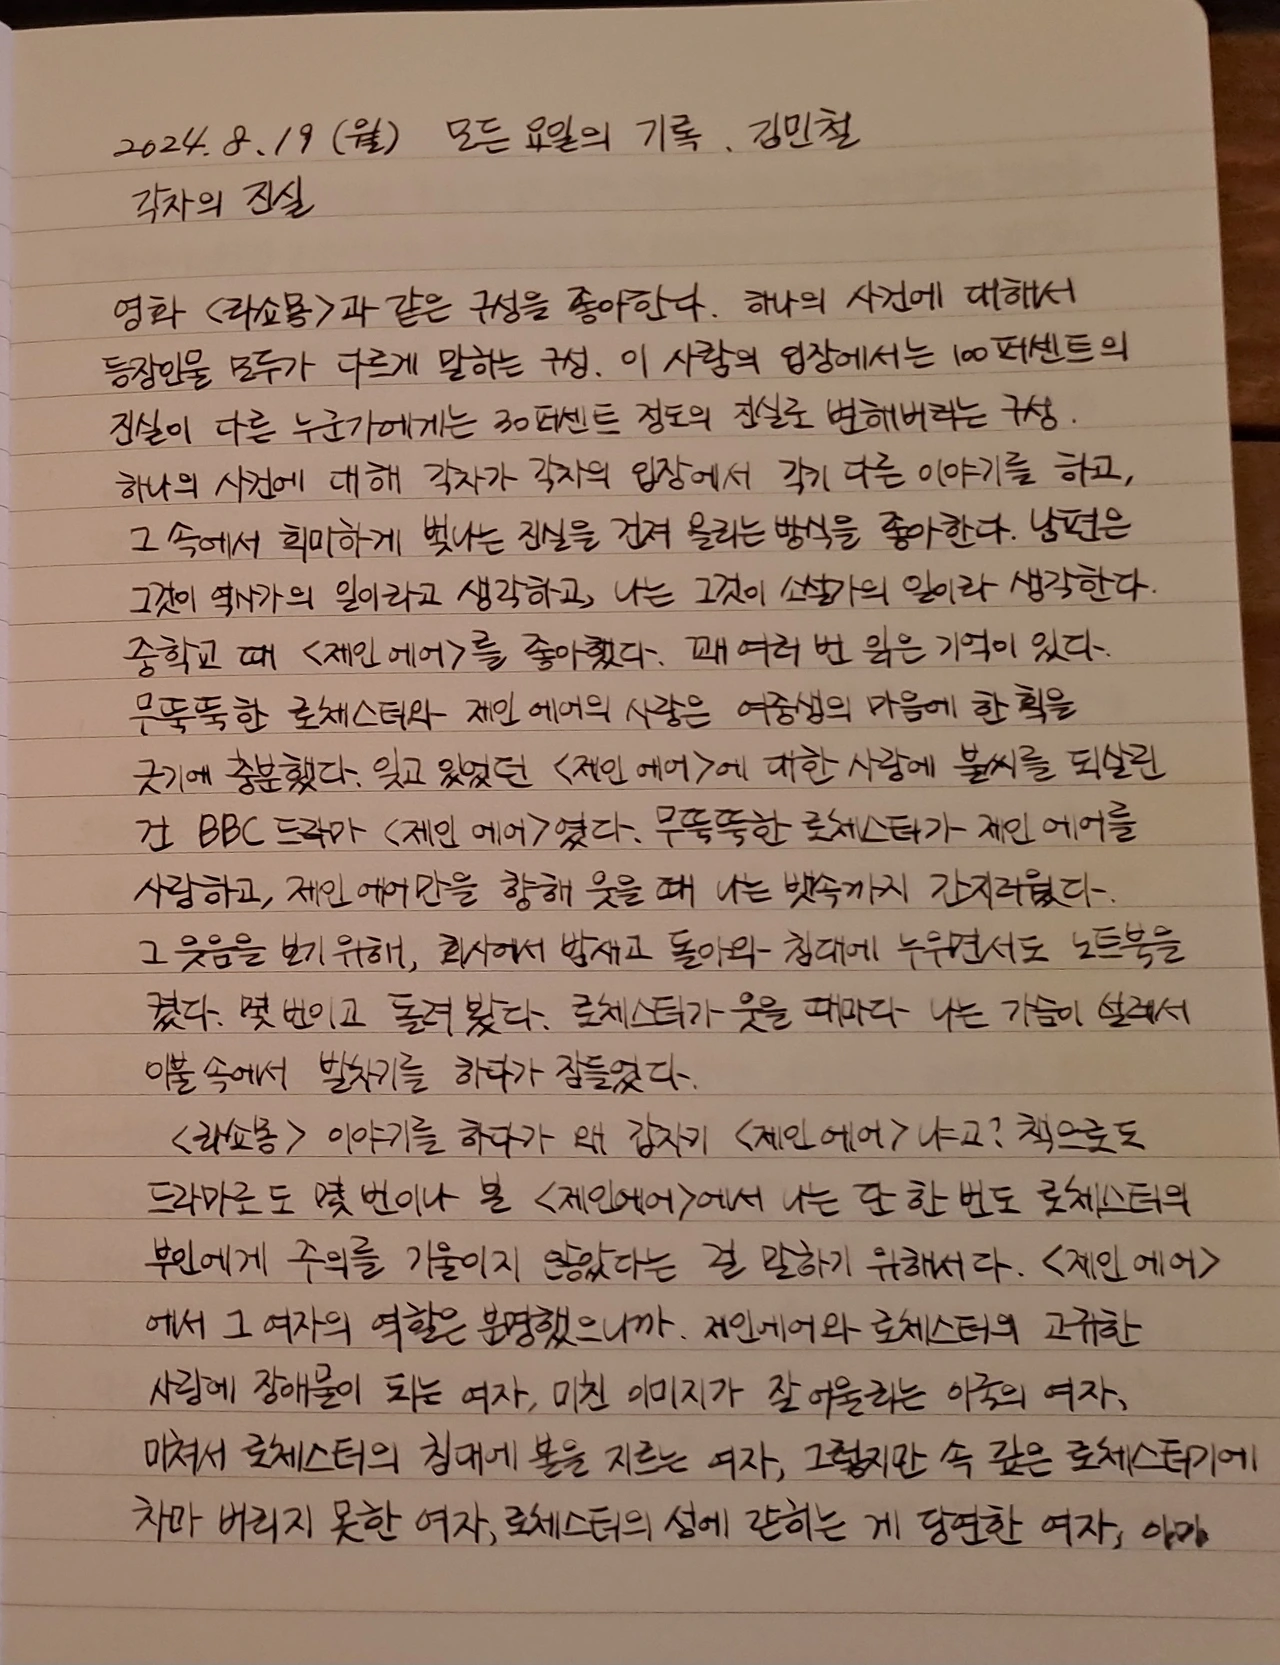 2024. 8. 19 (월) 모든 요일의 기록. 김민철
각자의 진실
영화 <라쇼몽>과 같은 구성을 좋아한다. 하나의 사건에 대해서
등장인물 모두가 다르게 말하는 구성. 이 사람의 입장에서는 100퍼센트의
진실이 다른 누군가에게는 30퍼센트 정도의 진실로 변해버리는 구성.
하나의 사건에 대해 각자가 각자의 입장에서 각기 다른 이야기를 하고,
그 속에서 희미하게 빛나는 진실을 건져 올리는 방식을 좋아한다. 남편은
그것이 역사가의 일이라고 생각하고, 나는 그것이 소설가의 일이라 생각한다.
중학교 때 <제인 에어>를 좋아했다. 꽤 여러 번 읽은 기억이 있다.
무뚝뚝한 로체스터와 제인 에어의 사랑은 여중생의 마음에 한 획을
긋기에 충분했다. 잊고 있었던 <제인 에어>에 대한 사랑에 불씨를 되살린
건 BBC 드라마 <제인 에어>였다. 무뚝뚝한 로체스터가 제인 에어를
사랑하고, 제인 에어만을 향해 웃을 때 나는 뱃속까지 간지러웠다.
그 웃음을 보기 위해, 회사에서 밤새고 돌아와 침대에 누우면서도 노트북을
켰다. 몇 번이고 돌려 봤다. 로체스터가 웃을 때마다 나는 가슴이 설레서
이불 속에서 발차기를 하다가 잠들었다.
<라쇼몽> 이야기를 하다가 왜 갑자기 <제인 에어>냐고? 책으로도
드라마로도 몇 번이나 본 <제인에어>에서 나는 단 한 번도 로체스터의
부인에게 주의를 기울이지 않았다는 걸 말하기 위해서다. <제인 에어>
에서 그 여자의 역할은 분명했으니까. 제인에어와 로체스터의 고귀한
사랑에 장애물이 되는 여자, 미친 이미지가 잘 어울리는 이국의 여자,
미쳐서 로체스터의 침대에 불을 지르는 여자, 그렇지만 속 깊은 로체스터기에
차마 버리지 못한 여자, 로체스터의 성에 갇히는 게 당연한 여자,